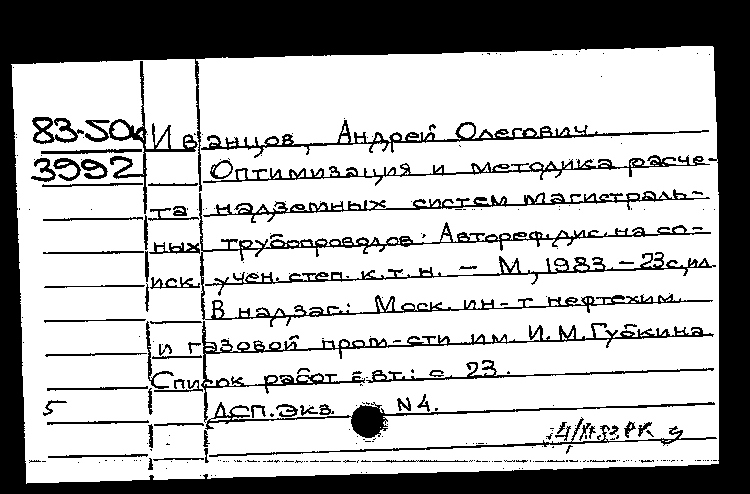 83-50к Иванцов, Андрей Олегович.
3992 Оптимизация и методика расче-
та надземных систем магистраль-
ных трубопроводов: Автореф. дис. на со-
иск. учен. степ. к.т.н. – М., 1983. – 23с., ил
В надзаг.: Моск. ин-т нефтехим.
и газовой пром-сти им. И.М. Губкина
Список работ авт.: с. 23.
5 ДСП. Экз. N4.